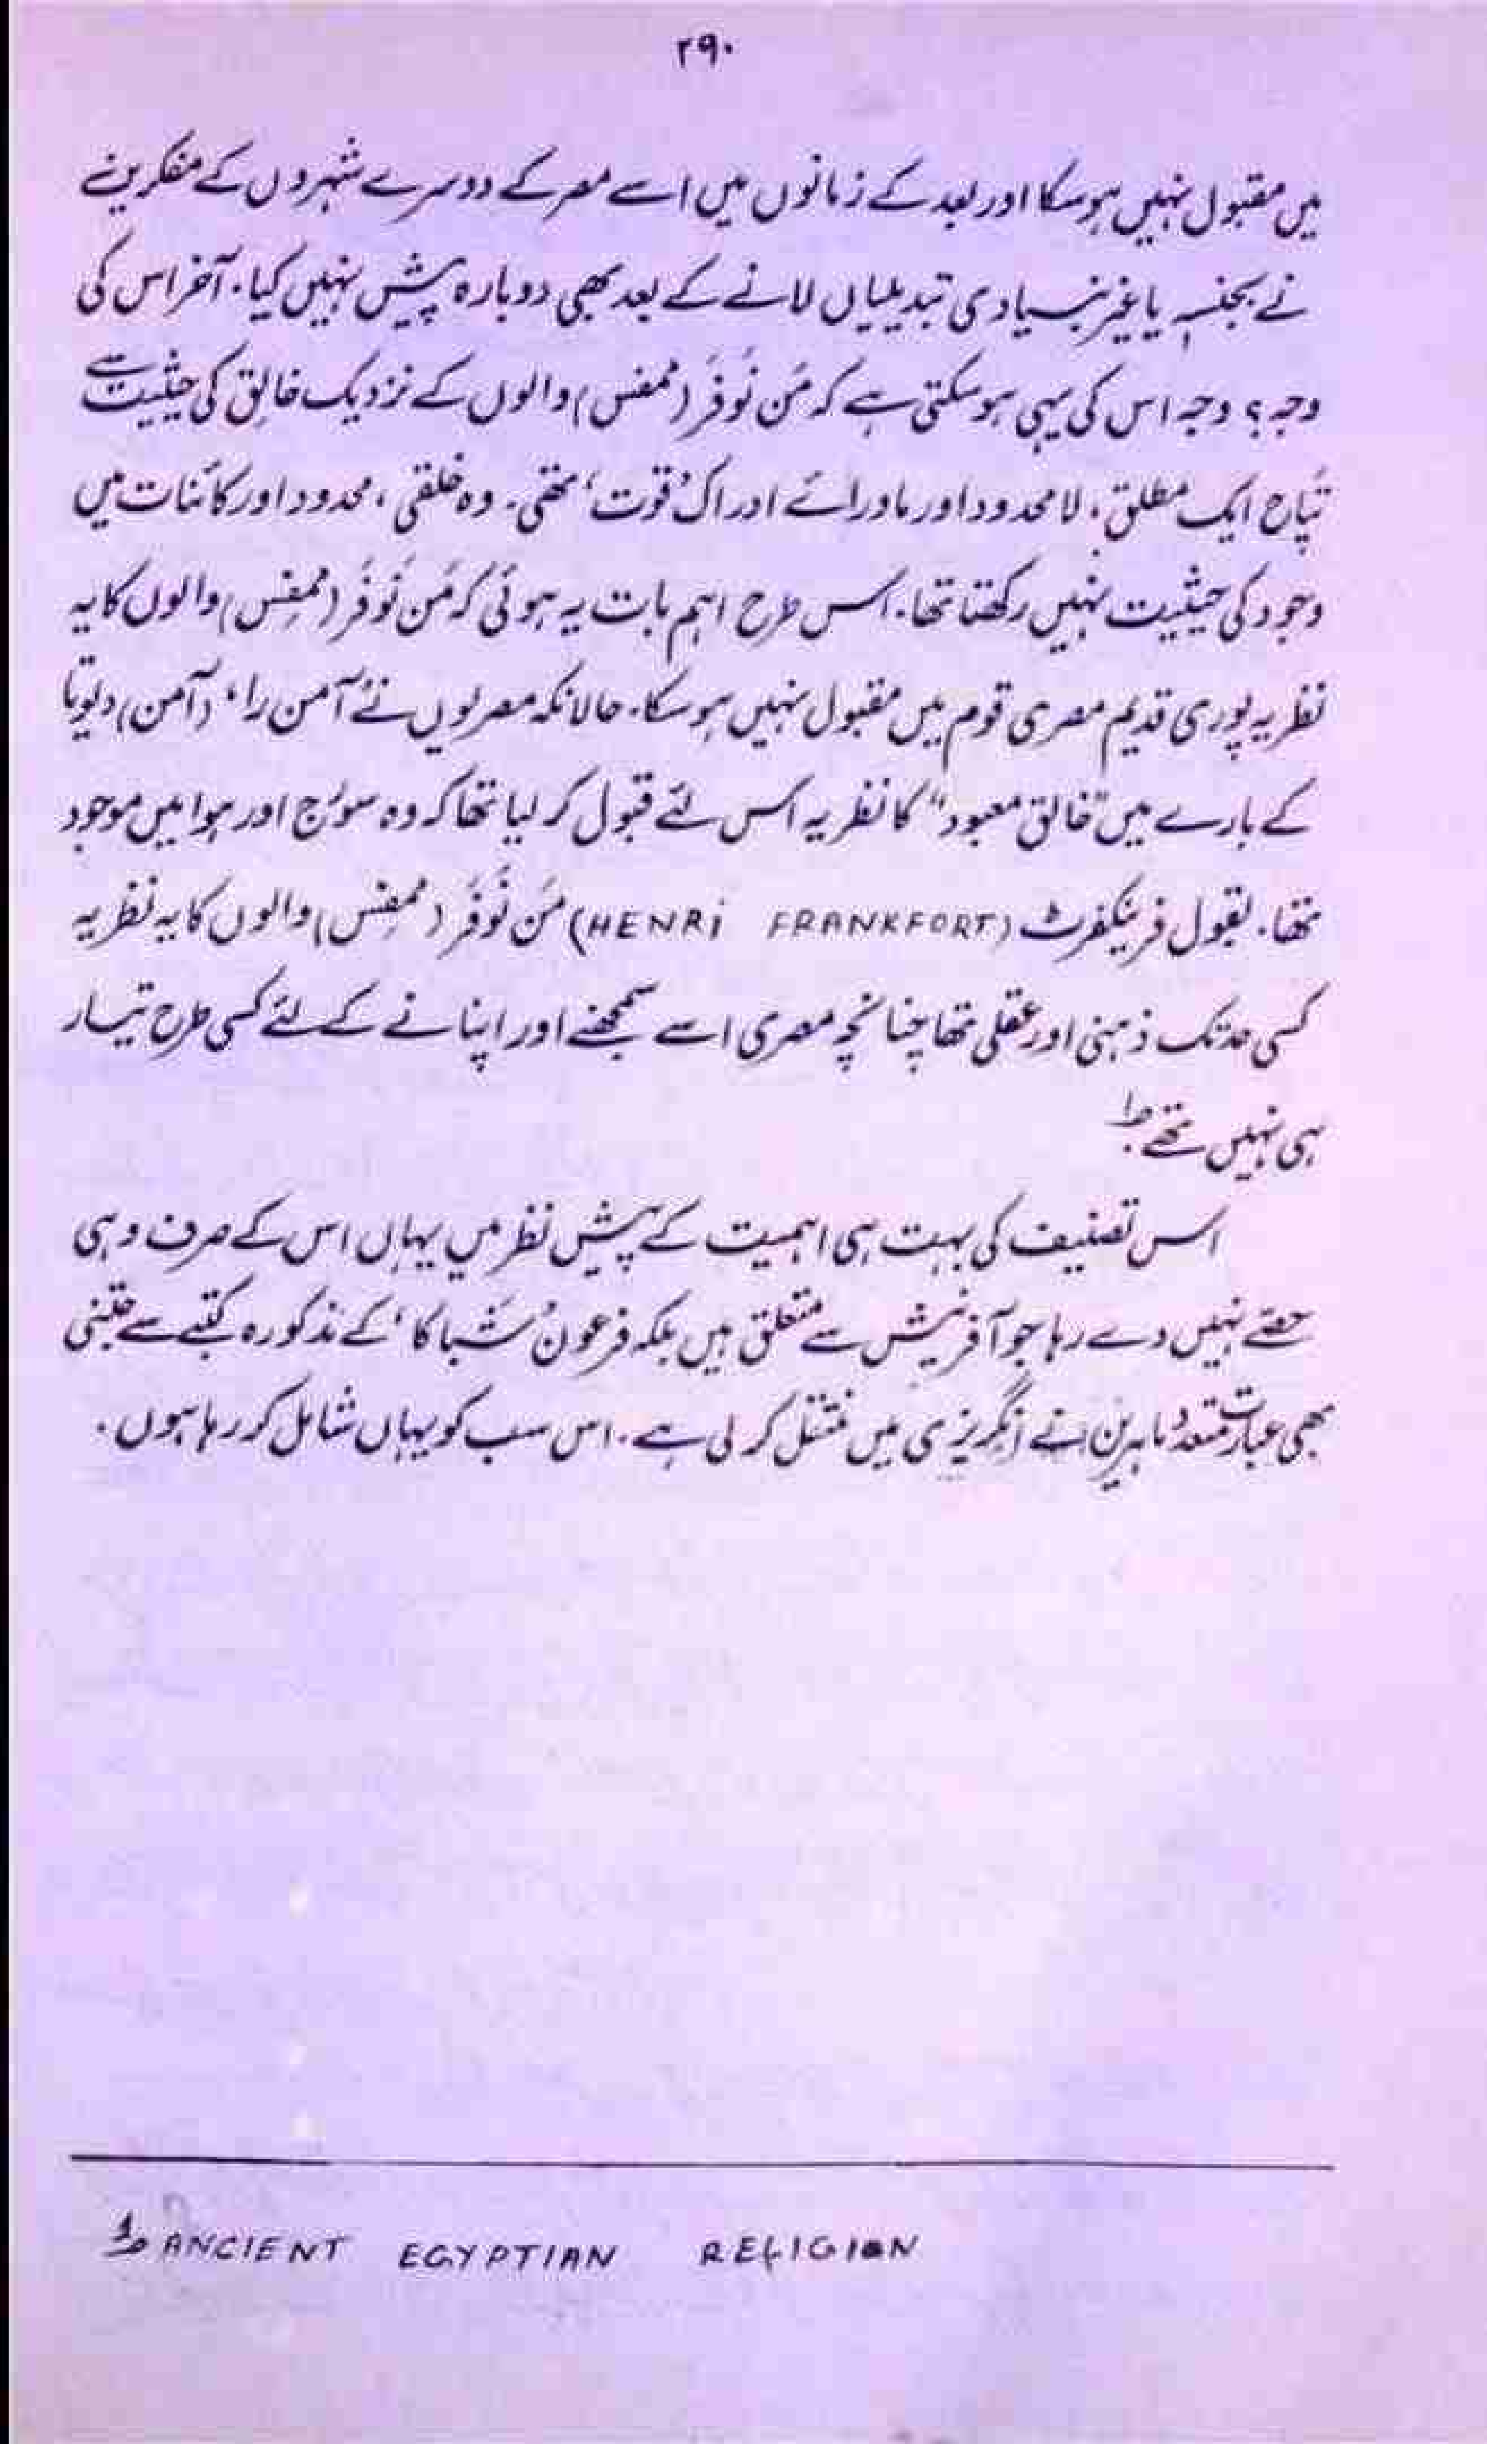 ۲۹۰
میں مقبول نہیں ہوسکا اور بعد کے زمانوں میں اسے مصر کے دوسرے شہروں کے مفکرین نے
نے بجنسہٖ یا غیر بنیادی تبدیلیاں لانے کے بعد بھی دوبارہ پیش نہیں کیا۔ آخر اس کی
وجہ؟ وجہ اس کی یہی ہوسکتی ہے کہ مَن نَوفَر (ممفس) والوں کے نزدیک خالِق کی حیثیت سے
تپاح ایک مطلق، لا محدود اور ماورائے ادراک ’قوت‘ تھی۔ وہ خلقی، محدود اور کائنات میں
وجود کی حیثیت نہیں رکھتا تھا۔ اس طرح اہم بات یہ ہوئی کہ مَن نَوفَر (ممفِس) والوں کا یہ
نظریہ پوری قدیم مصری قوم میں مقبول نہیں ہوسکا۔ حالانکہ مصریوں نے ’آمن را‘ (آمن) دیوتا
کے بارے میں ”خالق معبود“ کا نظریہ اس لئے قبول کر لیا تھا کہ وہ سورج اور ہوا میں موجود
تھا۔ بقول فرینکفرٹ (HENRi FRANKFORT) مَن نَوفَر (ممفِس) والوں کا یہ نظریہ
کسی حد تک ذہنی اور عقلی تھا چنانچہ مصری اسے سمجھنے اور اپنانے کے لئے کسی طرح تیار
ہی نہیں تھے۔ ۱؎
اس تصنیف کی بہت ہی اہمیت کے پیش نظر میں یہاں اس کے صرف وہی
حصّے نہیں دے رہا جو آفرینش سے متعلق ہیں بلکہ فرعون ’شَباکا‘ کے مذکورہ کتبے سے جتنی
بھی عبارت متعدد ماہرین نے انگریزی میں منتقل کر لی ہے۔ اس سب کو یہاں شامل کر رہا ہوں۔
۱؎ ANCIENT EGYPTIAN RELIGION